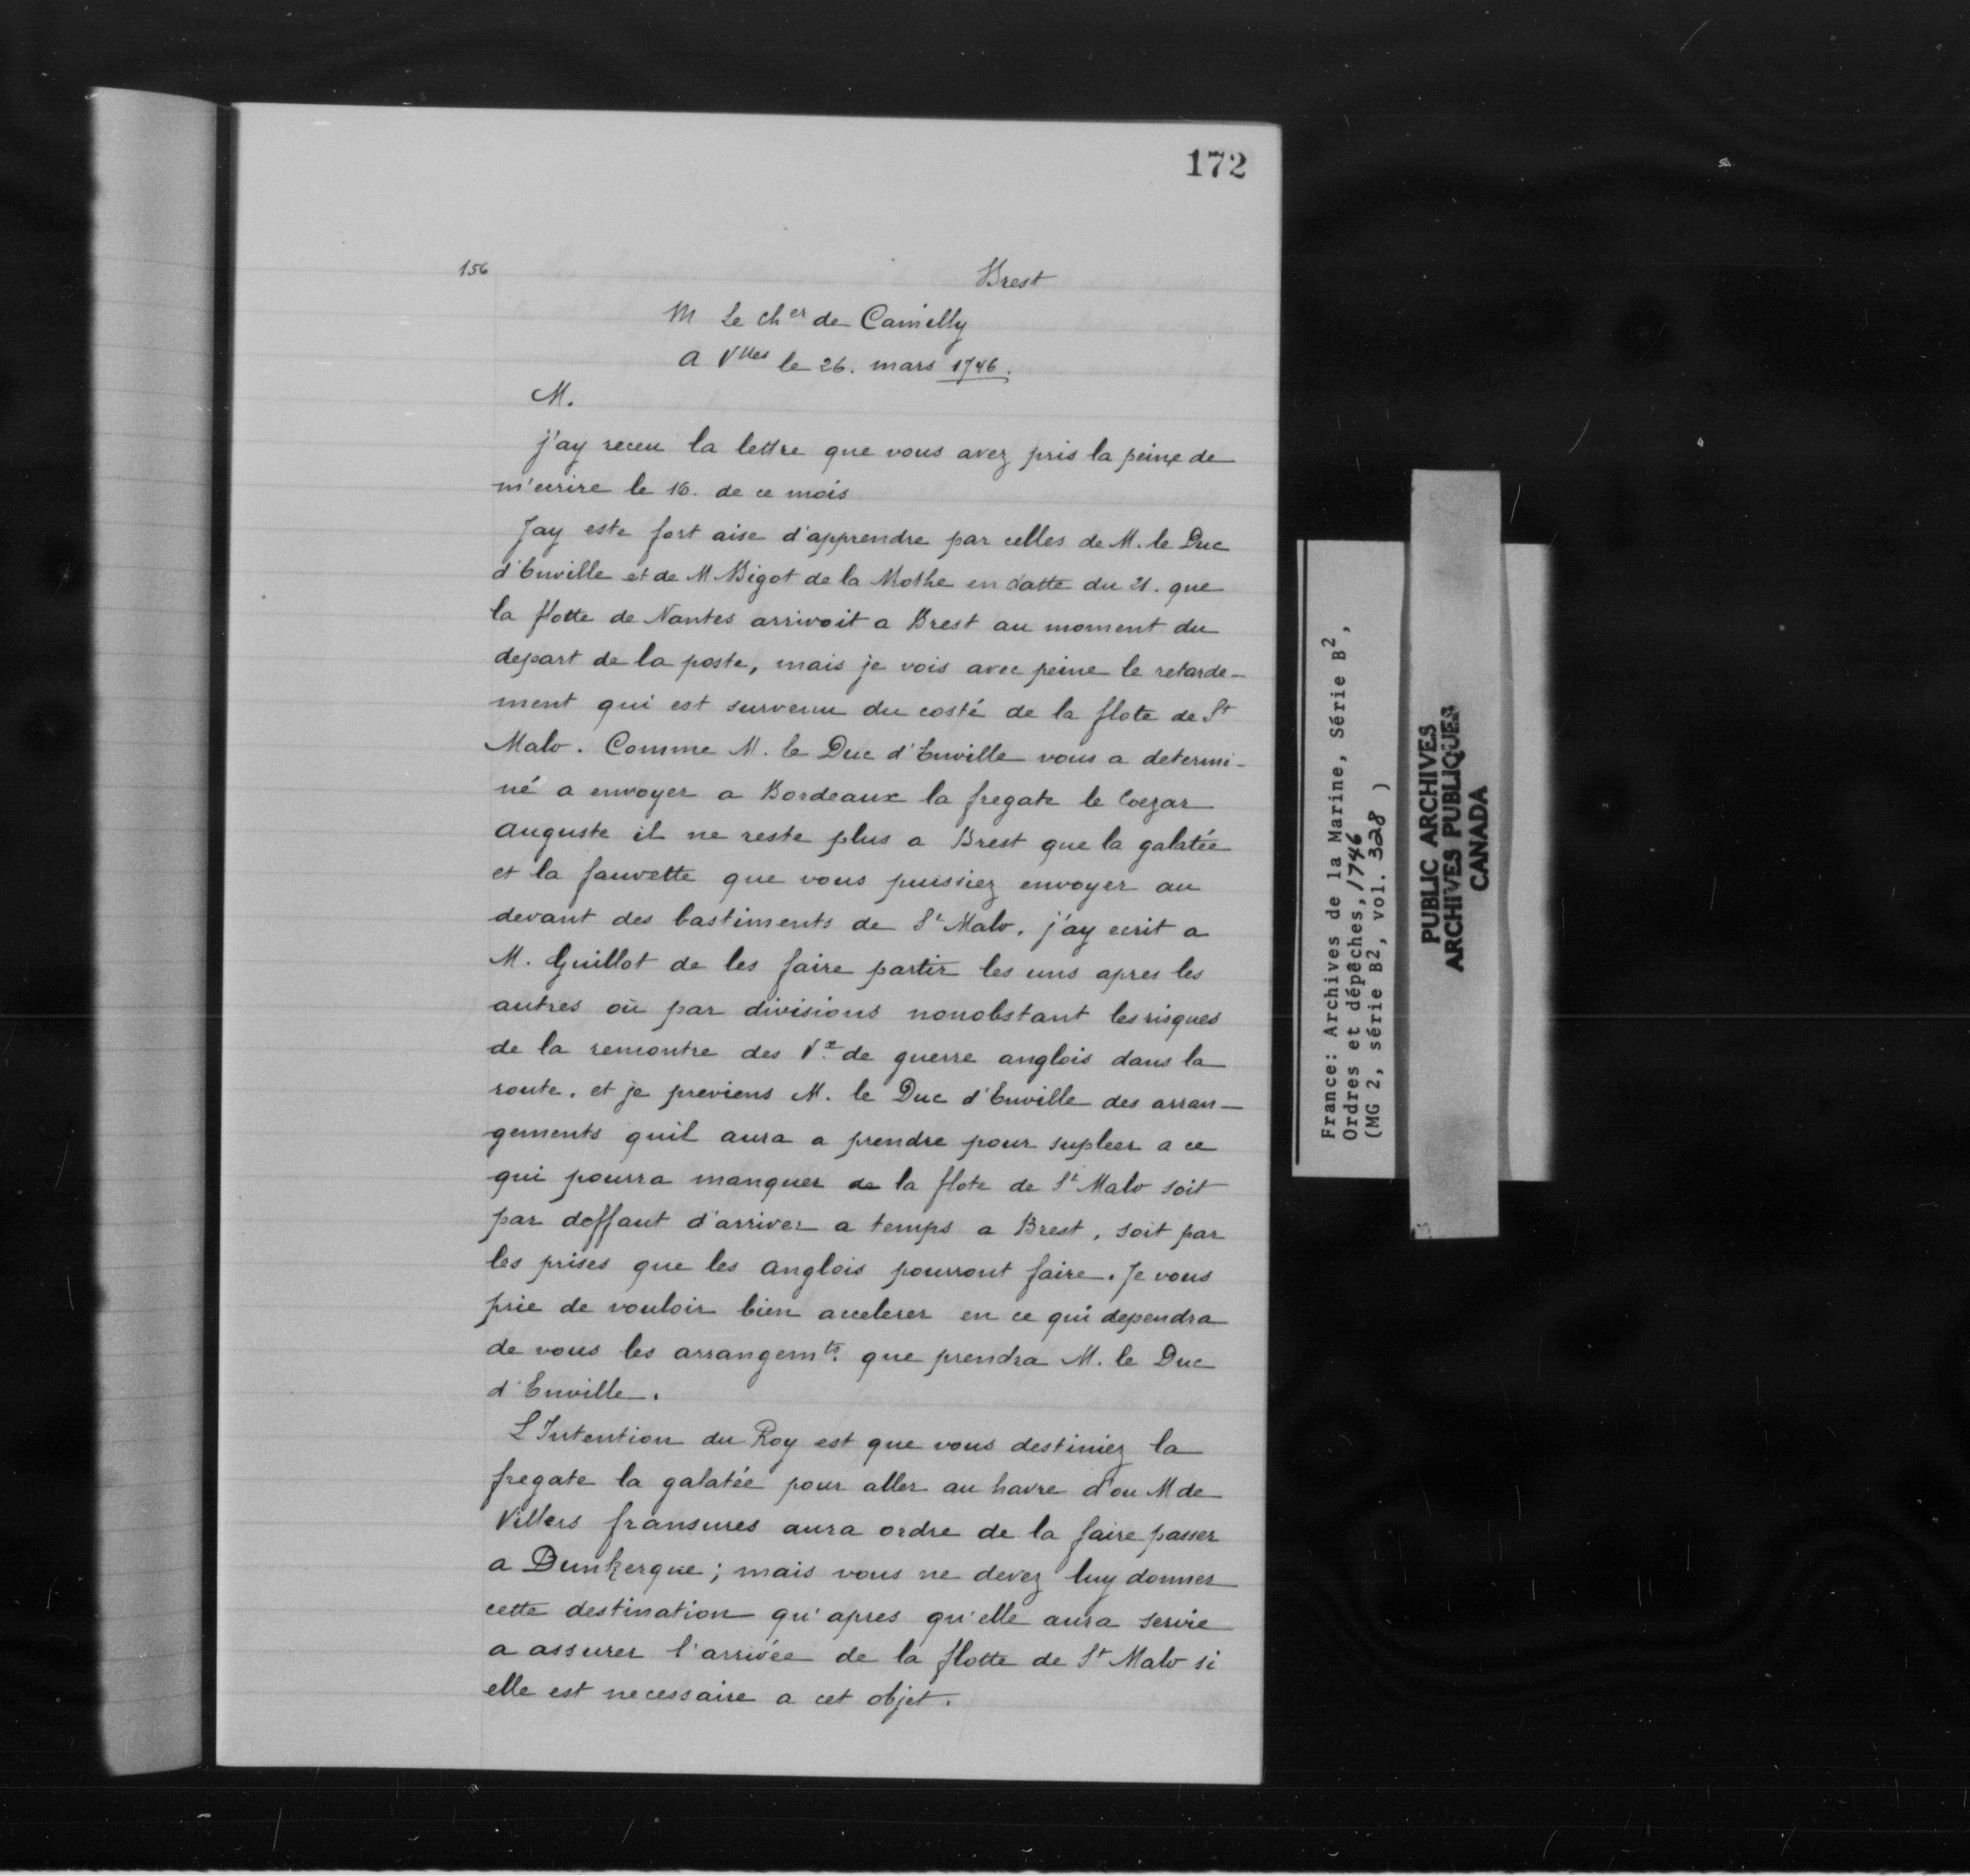 172
156
Brest
M Le cher de Camilly
a Vlles le 26. mars 1746.
M.
j'ay receu la lettre que vous avez pris la peine de
m'ecrire le 16. de ce mois
Jay este fort aise d'apprendre par celles de M. le Duc
d'Enville et de M Bigot de la Mothe en datte du 21. que
la flotte de Nantes arrivoit a Brest au moment du
depart de la poste, mais je vois avec peine le retarde-
ment qui est survenu du costé de la flote de St
Malo. Comme M. le Duc d'Enville vous a determi-
né a envoyer a Bordeaux la fregate le Coezar
auguste il ne reste plus a Brest que la galatée
et la fauvette que vous puissiez envoyer au
devant des bastiments de St Malo. j'ay ecrit a
M. Guillot de les faire partir les uns apres les
autres où par divisions nonobstant les risques
de la rencontre des Vx de guerre anglois dans la
route. et je previens M. le Duc d'Enville des arran-
gements quil aura a prendre pour supleer a ce
qui pourra manquer de la flote de St Malo soit
par deffaut d'arriver a temps a Brest, soit par
les prises que les anglois pourront faire. Je vous
prie de vouloir bien accelerer en ce qui dependra
de vous les arrangemts. que prendra M. le Duc
d'Enville.
L'Intention du Roy est que vous destiniez la
fregate la galatée pour aller au havre d'ou M de
Villers fransures aura ordre de la faire passer
a Dunkerque; mais vous ne devez luy donner
cette destination qu'apres qu'elle aura servie
a assurer l'arrivée de la flotte de St Malo si
elle est necessaire a cet objet.
France: Archives de la Marine, Série B2,
Ordres et dépêches, 1746
(MG 2, série B2, vol. 328 )
PUBLIC ARCHIVES
ARCHIVES PUBLIQUES
CANADA